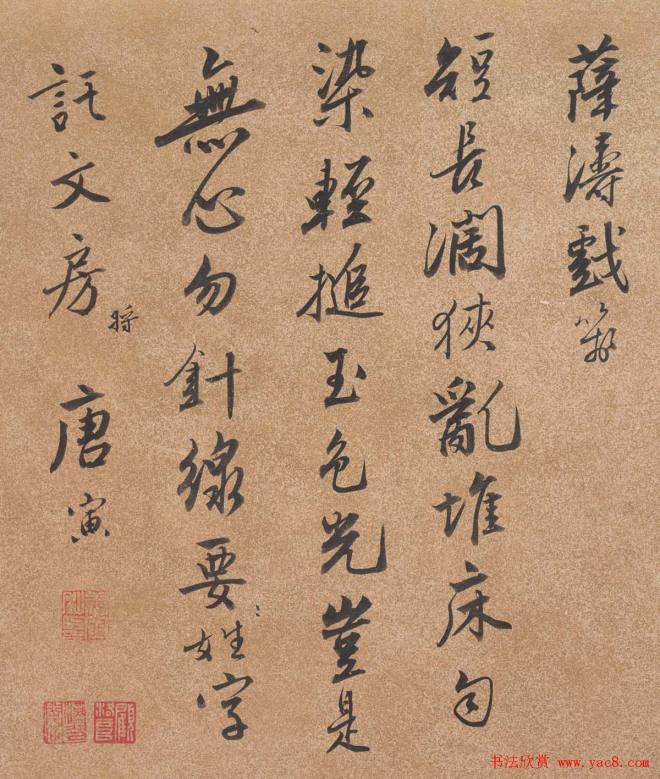 薛濤戲箋
短長濶狹亂堆床勻
染輕搥玉色光豈是
無心勿針線要姓字
託文房 將 唐寅
书法欣赏 www.yac8.com